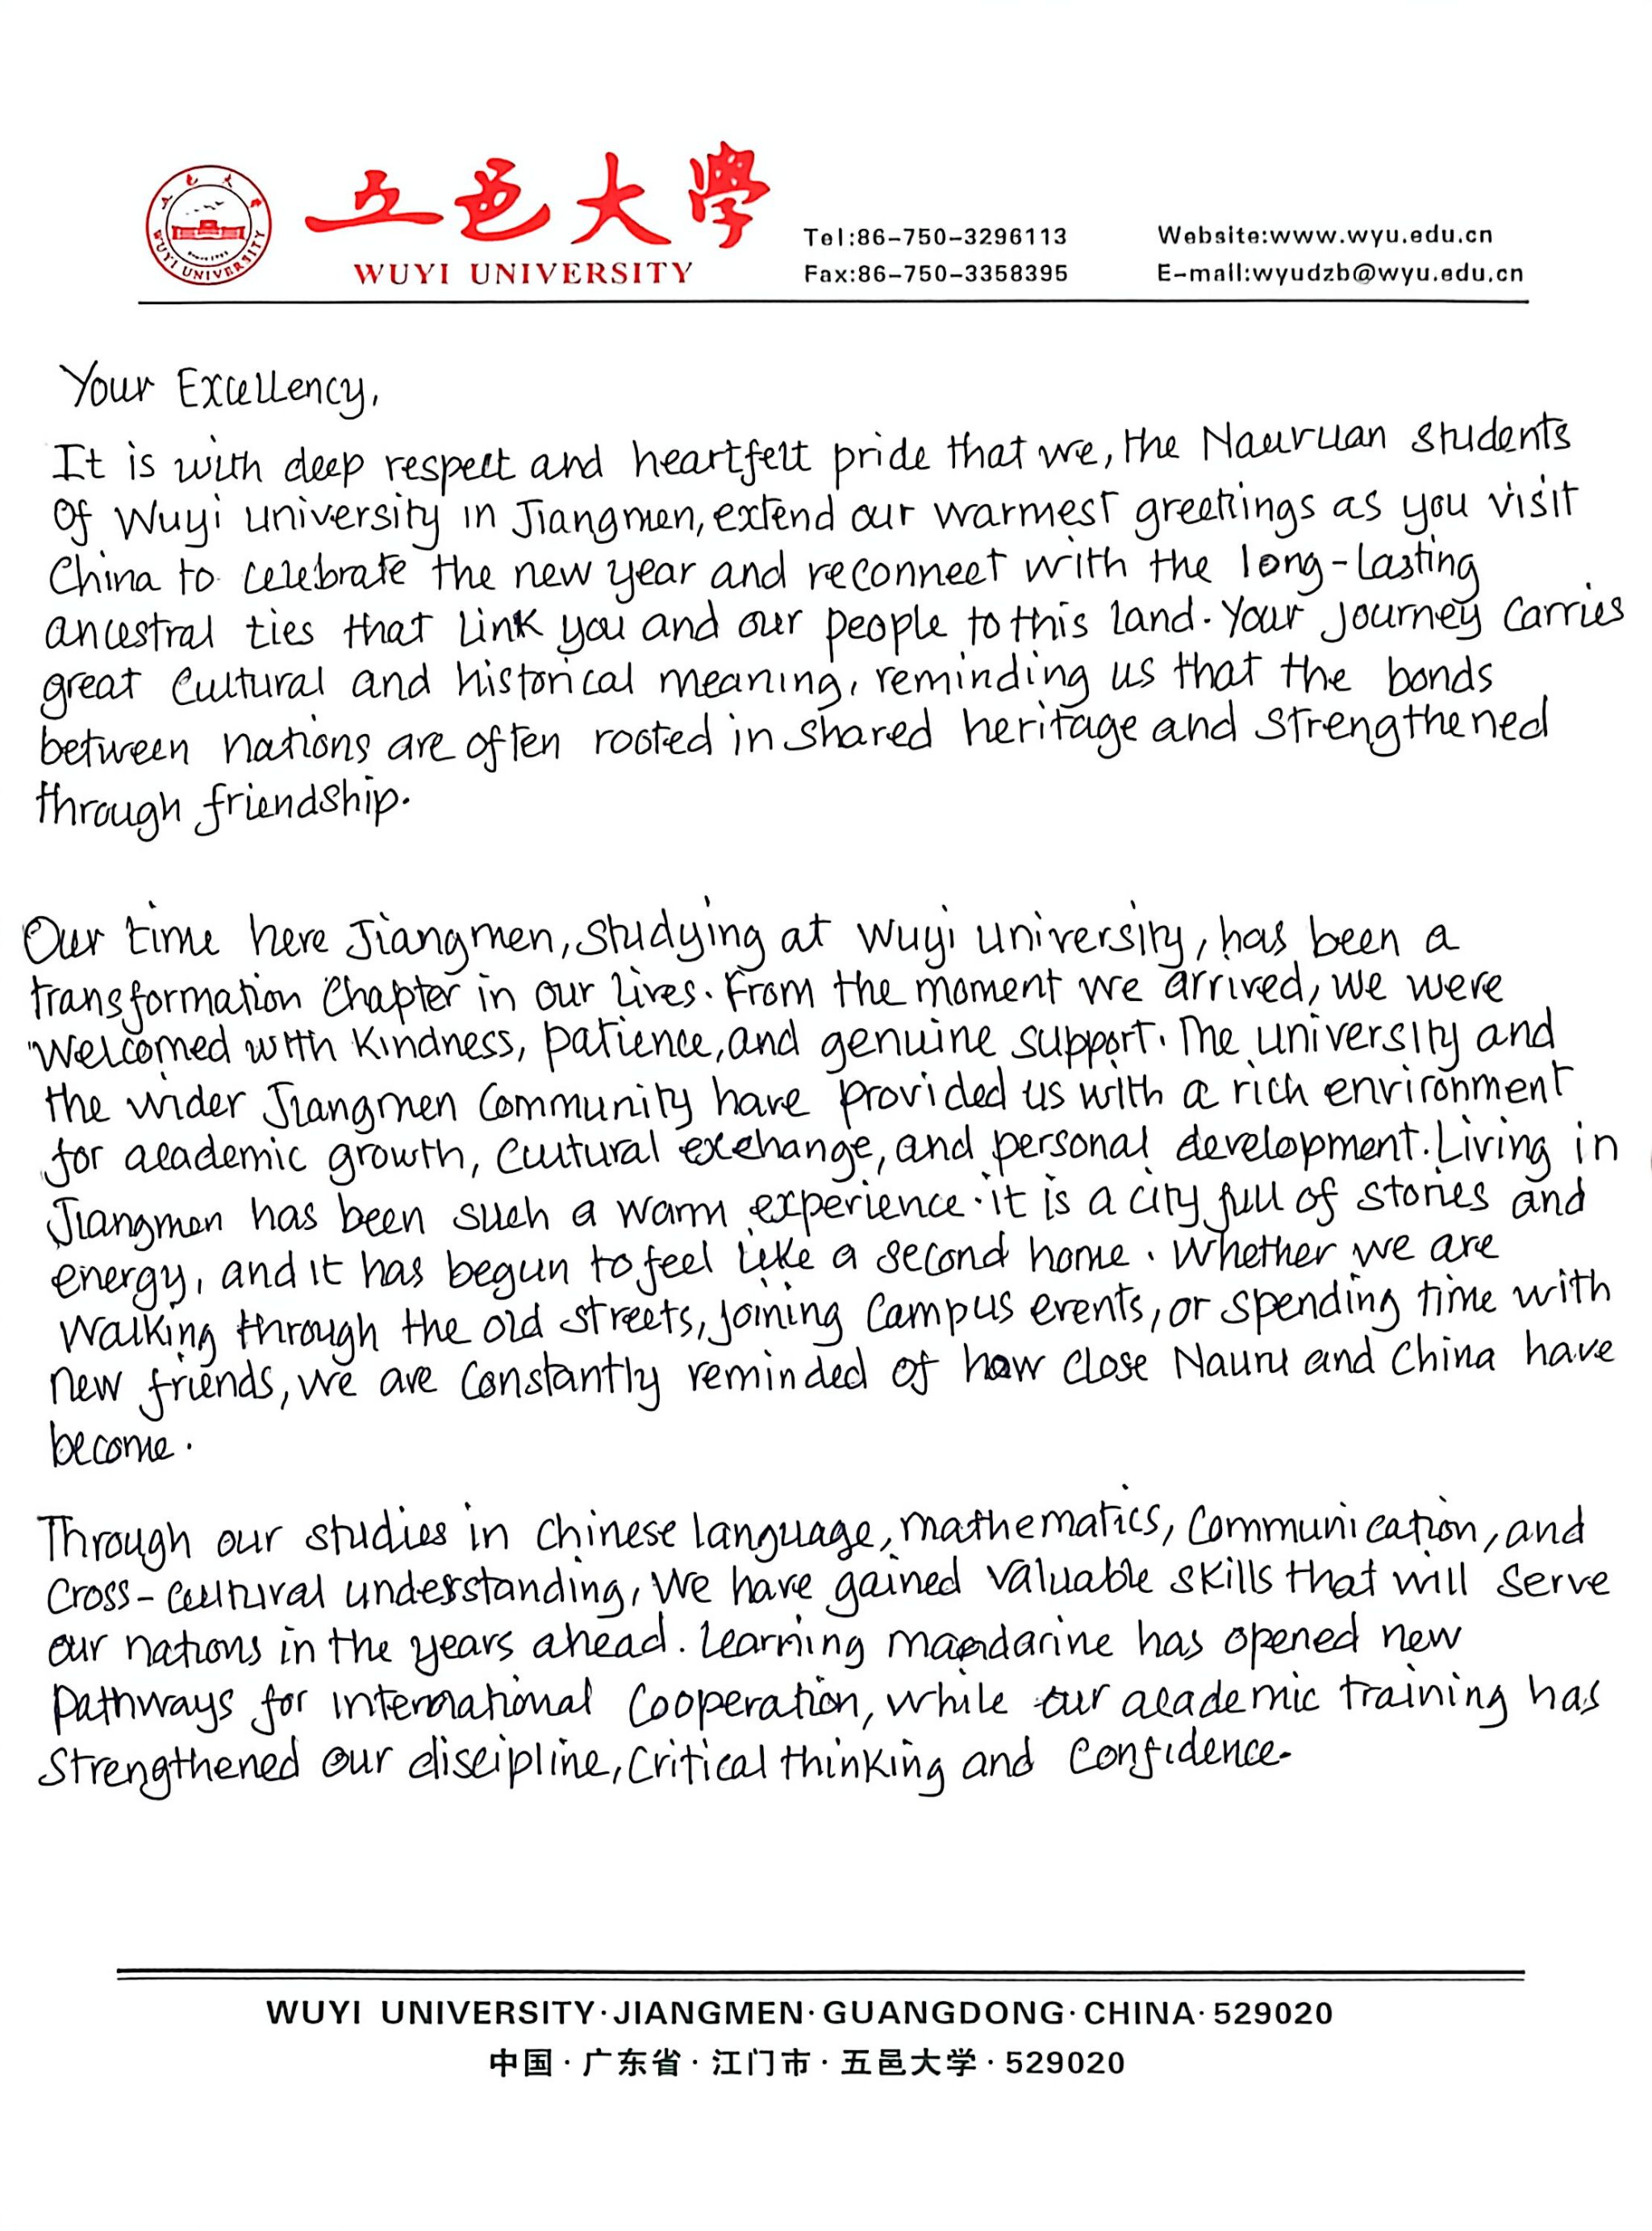 五邑大學
WUYI UNIVERSITY
Tel:86-750-3296113
Fax:86-750-3358395
Website:www.wyu.edu.cn
E-mail:wyudzb@wyu.edu.cn
Your Excellency,
It is with deep respect and heartfelt pride that we, the Nauruan students
Of Wuyi university in Jiangmen, extend our warmest greetings as you visit
China to celebrate the new year and reconnect with the long-lasting
ancestral ties that link you and our people to this land. Your journey carries
great cultural and historical meaning, reminding us that the bonds
between nations are often rooted in shared heritage and strengthened
through friendship.
Our time here Jiangmen, studying at Wuyi university, has been a
transformation chapter in our lives. From the moment we arrived, we were
welcomed with kindness, patience, and genuine support. The university and
the wider Jiangmen community have provided us with a rich environment
for academic growth, cultural exchange, and personal development. Living in
Jiangmen has been such a warm experience. it is a city full of stories and
energy, and it has begun to feel like a second home. Whether we are
walking through the old streets, joining campus events, or spending time with
new friends, we are constantly reminded of how close Nauru and China have
become.
Through our studies in Chinese language, mathematics, communication, and
cross-cultural understanding, we have gained valuable skills that will serve
our nations in the years ahead. Learning mandarine has opened new
pathways for international cooperation, while our academic training has
strengthened our discipline, critical thinking and confidence.
WUYI UNIVERSITY·JIANGMEN·GUANGDONG·CHINA·529020
中国·广东省·江门市·五邑大学·529020